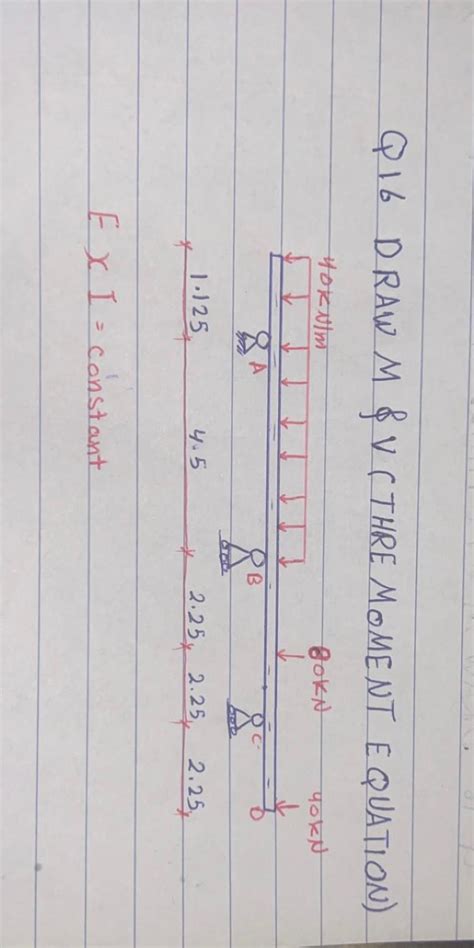 Q16 DRAW M & V (THRE MOMENT EQUATION)
40KN/M 80KN 40KN
A B C D
1.125 4.5 2.25 2.25 2.25
E X I = constant